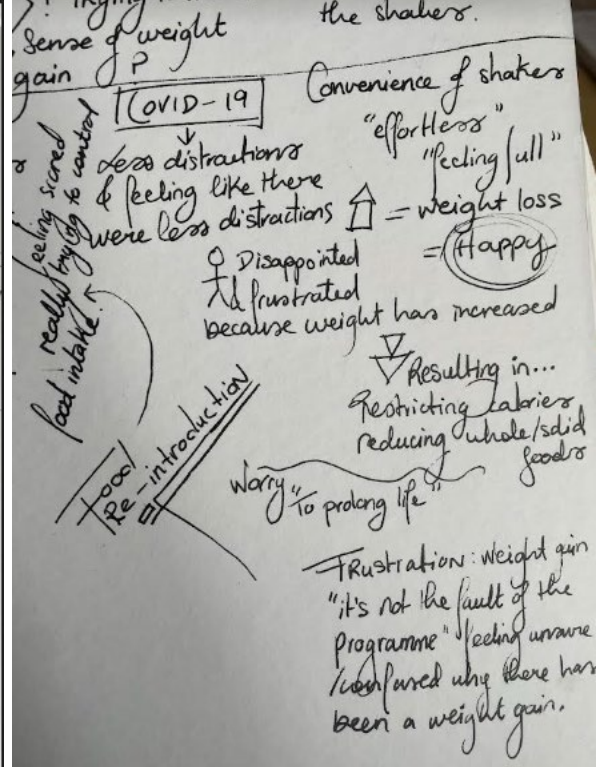 the shakes.
Sense of weight
gain
COVID-19
Less distractions
& feeling like there
were less distractions
Convenience of shakes
"effortless"
"feeling full"
= weight loss
= Happy
Disappointed
& frustrated
because weight has increased
Resulting in...
Restricting calories
reducing whole/solid
foods
feeling scared
really trying to control
food intake.
Food
Re-introduction
Worry "To prolong life"
Frustration: Weight gain
"it's not the fault of the
programme" feeling unsure
/confused why there has
been a weight gain.